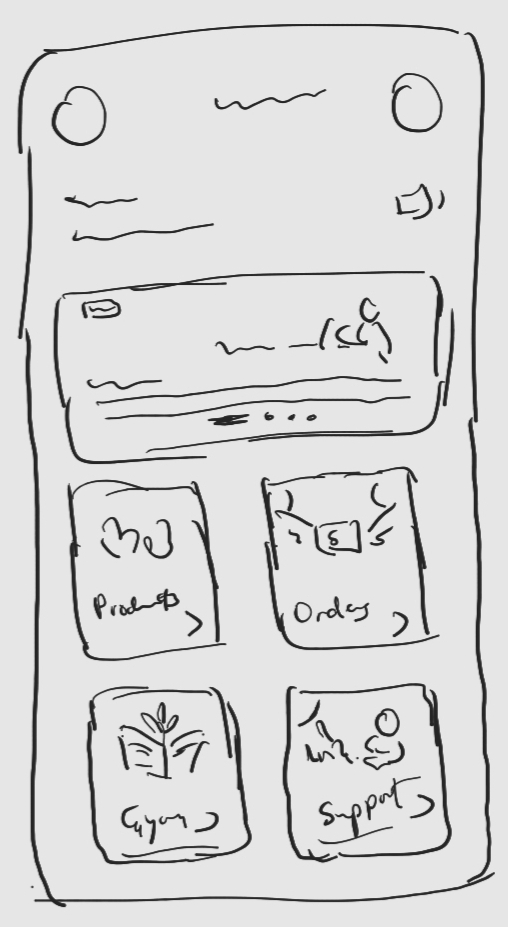 Products
Orders
Gyan
Support